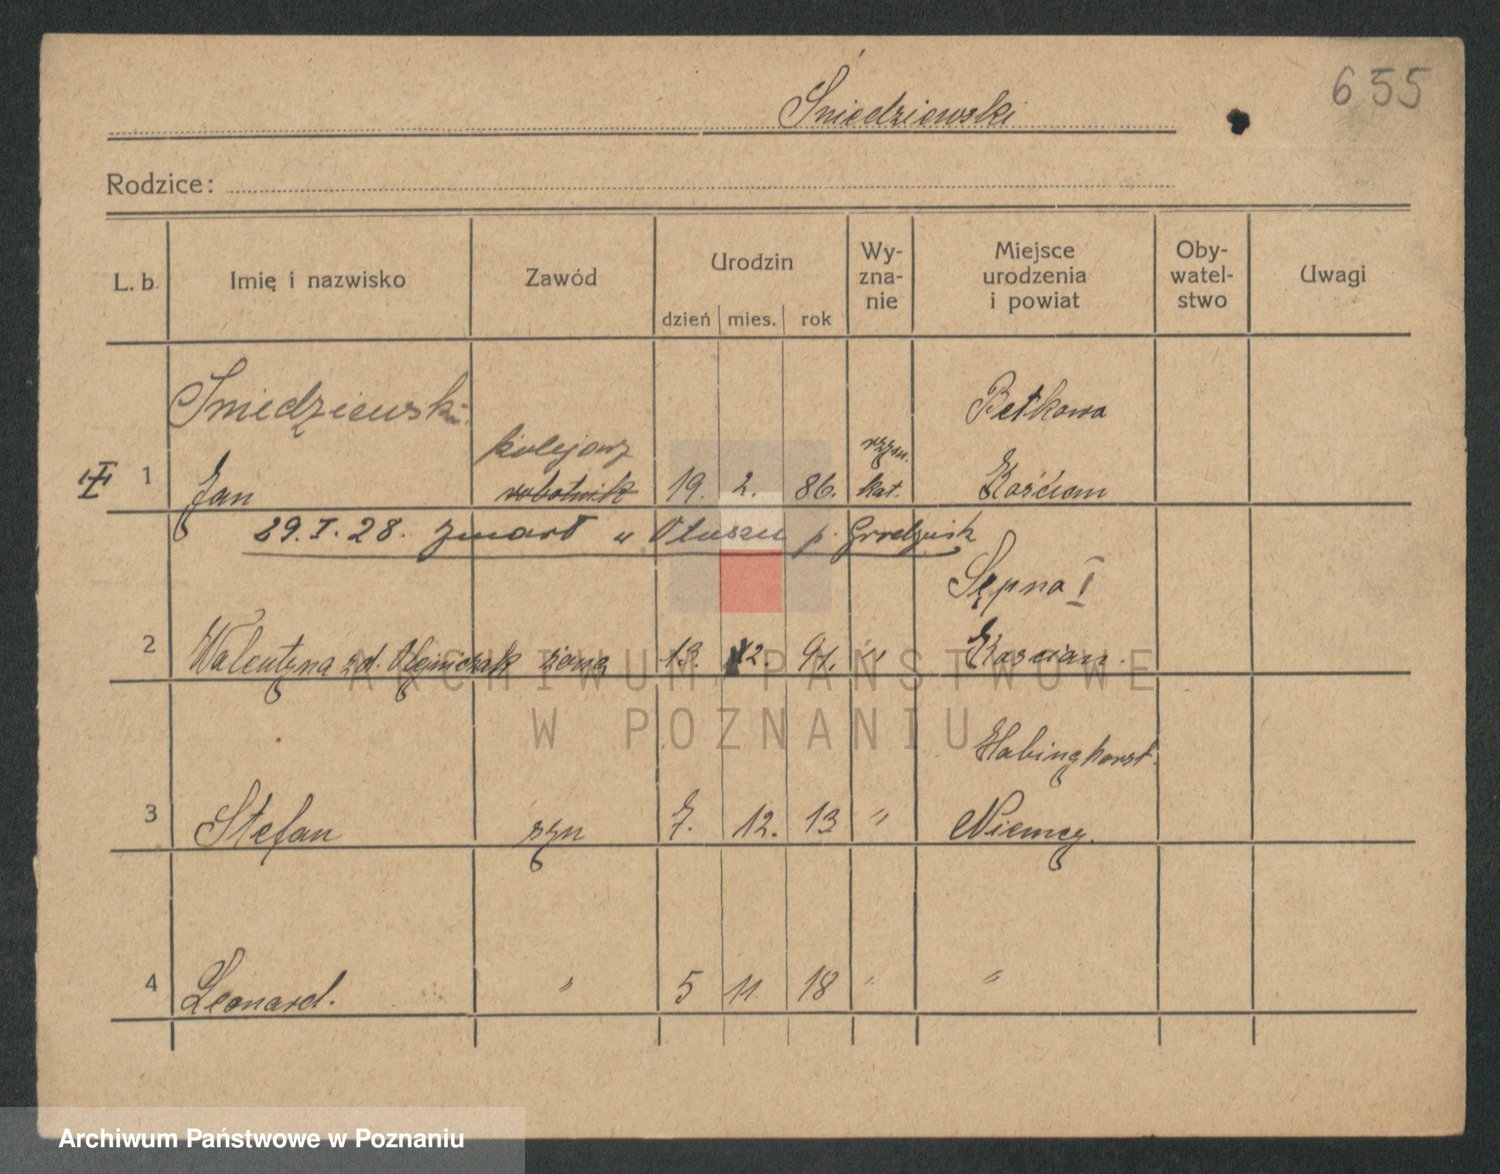 655
Śniedziewski
Rodzice:
L. b. Imię i nazwisko Zawód Urodzin Wy-zna-nie Miejsce urodzenia i powiat Oby-watel-stwo Uwagi
dzień mies. rok
Śniedziewski Betkowo
kolejowy rzym.
1 Jan robotnik 19. 2. 86. kat. Kościan
29. I. 28. zmarł w Ptaszu p. Grodzisk
Sępno I
2 Walentyna zd. Olejniczak żona 13. 12. 91. " Kościan.
Habinghorst.
3 Stefan syn 7. 12. 13 " Niemcy.
4 Leonard. " 5 11 18 " "
ARCHIWUM PAŃSTWOWE
W POZNANIU
Archiwum Państwowe w Poznaniu